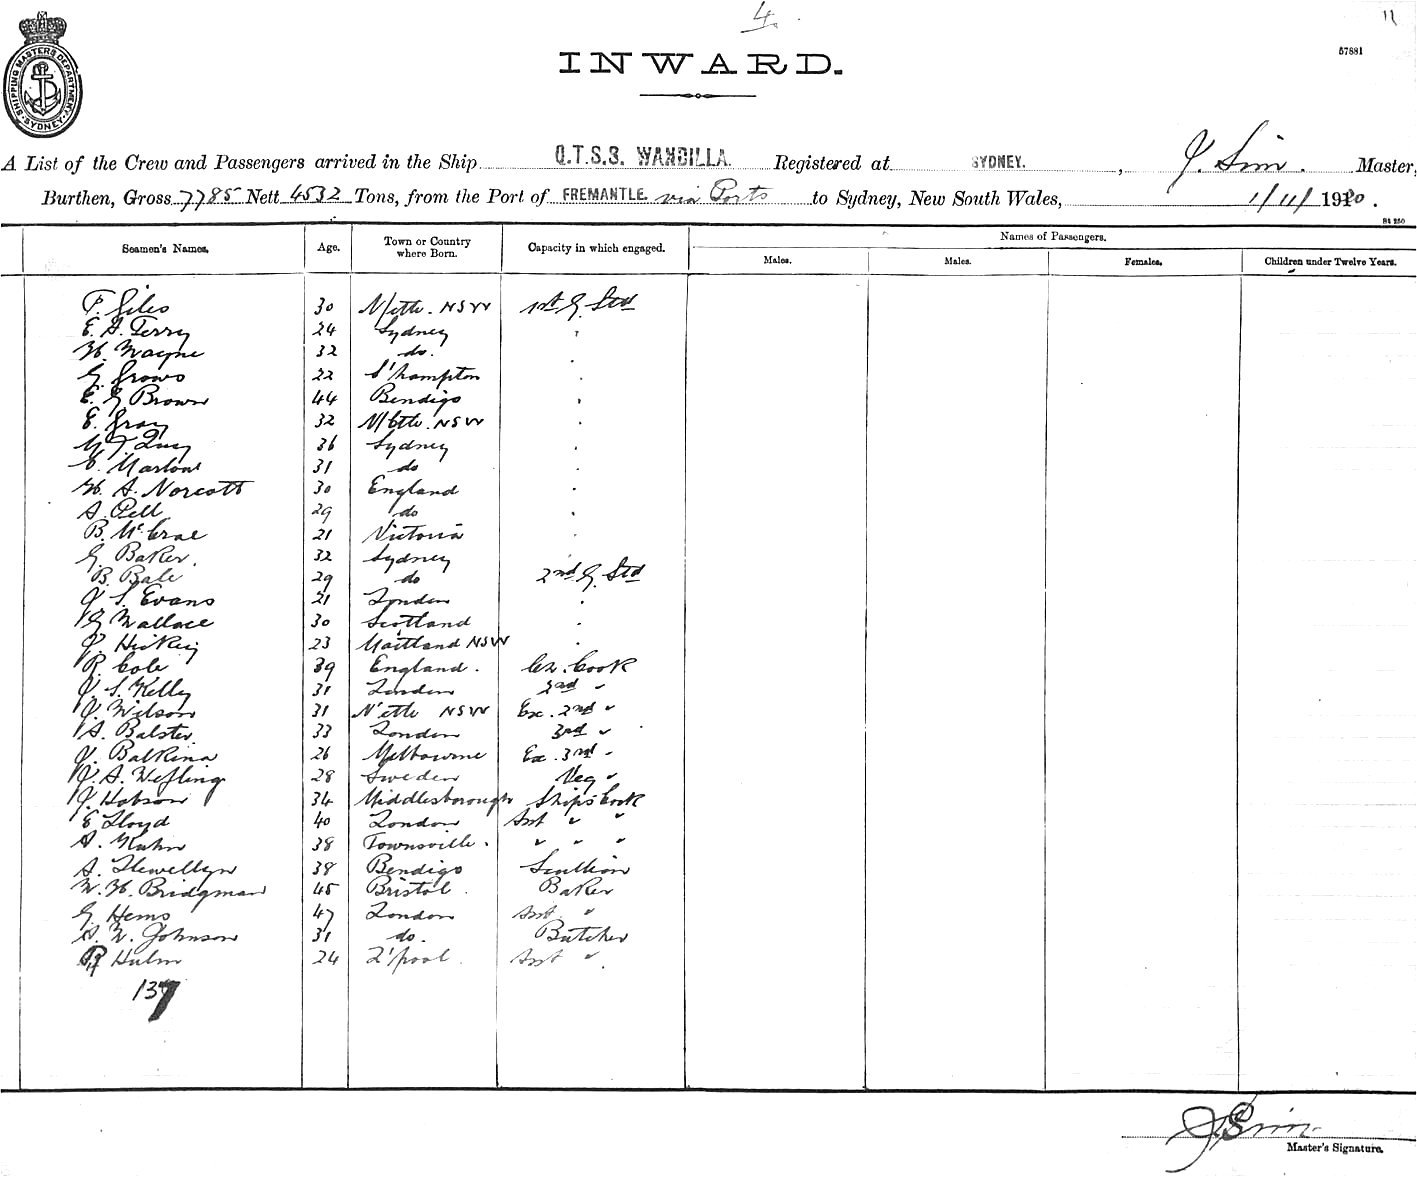 4.
11
57881
SHIPPING MASTERS DEPARTMENT. SYDNEY.
INWARD.
A List of the Crew and Passengers arrived in the Ship Q.T.S.S. WANDILLA. Registered at SYDNEY. , J. Sim. Master,
Burthen, Gross 7785 Nett 4532 Tons, from the Port of FREMANTLE. via Ports to Sydney, New South Wales, 1/11/ 1920.
Seamen's Names. Age. Town or Country where Born. Capacity in which engaged. Names of Passengers.
Males. Males. Females. Children under Twelve Years.
Giles 30 N/ctle. NSW 1st G. Std
E. A. Terry 24 Sydney "
H. Wayne 32 do.
G. 22 S'hampton
E. G Brown 44 Bendigo
E. Gray 32 N/ctle. NSW
36 Sydney
Marlow 31 do
H. A. Norcott 30 England
A. Pell 29 do
B. McCrae 21 Victoria
G. Baker. 32 Sydney
B. Bale 29 do 2nd G. Std
J S. Evans 21 London
G Wallace 30 Scotland
J. Hickey 23 Maitland NSW
R. Cole 39 England. Ch. Cook
J. S. Kelly 31 London 2nd "
J. Wilson 31 N'ctle NSW Ex. 2nd "
A. Balster 33 London 3rd "
J. Balkina 26 Melbourne Ex. 3rd "
J. A. Wefling 28 Sweden Veg "
J. Hobson 34 Middlesborough Ships Cook
E Lloyd 40 London Asst " "
A. Kuhn 38 Townsville. " " "
A. Llewellyn 38 Bendigo Scullion
W. H. Bridgman 45 Bristol. Baker
G Hems 47 London Asst. "
A. W. Johnson 31 do. Butcher
Hulm 24 L'pool. Asst "
137
J. Sim
Master's Signature.